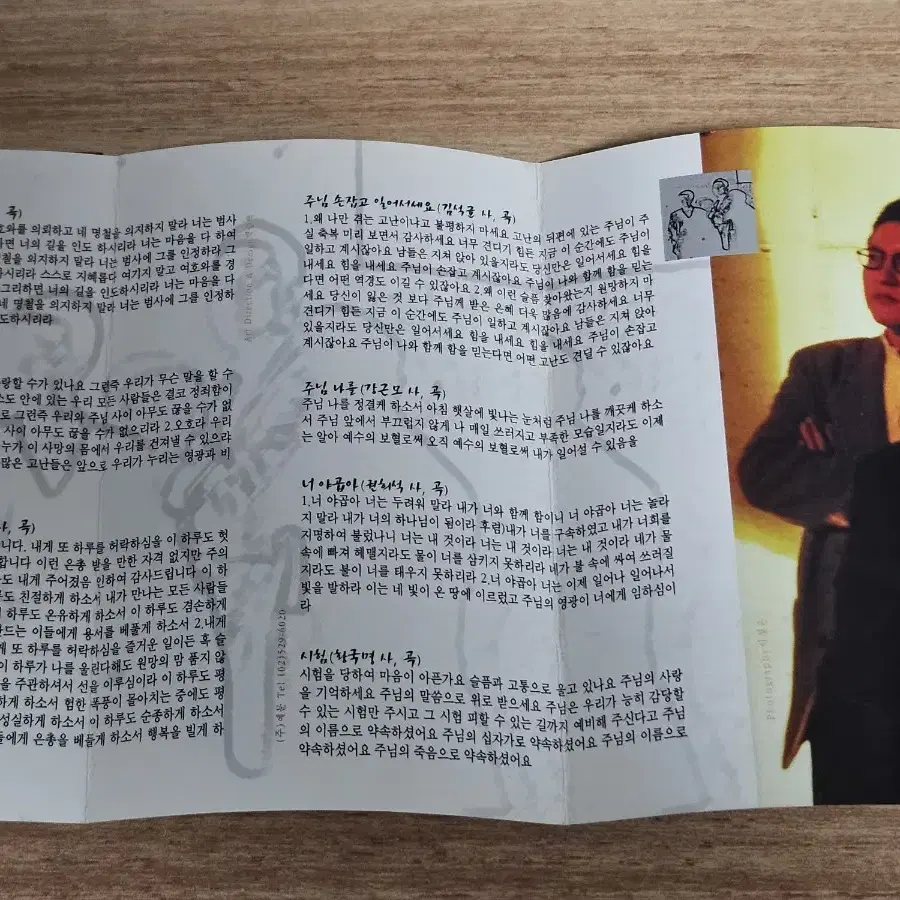 곡)
호와를 의뢰하고 네 명철을 의지하지 말라 너는 범사
하면 너의 길을 인도 하시리라 너는 마음을 다 하여
철을 의지하지 말라 너는 범사에 그를 인정하라 그
하시리라 스스로 지혜롭다 여기지 말고 여호와를 경
그리하면 너의 길을 인도하시리라 너는 마음을 다
네 명철을 의지하지 말라 너는 범사에 그를 인정하
도하시리라
랑할 수가 있나요 그런즉 우리가 무슨 말을 할 수
스도 안에 있는 우리 모든 사람들은 결코 정죄함이
로 그런즉 우리와 주님 사이 아무도 끊을 수가 없
사이 아무도 끊을 수가 없으리라 2.오호라 우리
누가 이 사망의 몸에서 우리를 건져낼 수 있으랴
많은 고난들은 앞으로 우리가 누리는 영광과 비
사, 곡)
니다. 내게 또 하루를 허락하심을 이 하루도 헛
합니다 이런 은총 받을 만한 자격 없지만 주의
도 내게 주어졌음 인하여 감사드립니다 이 하
도 친절하게 하소서 내가 만나는 모든 사람들
이 하루도 온유하게 하소서 이 하루도 겸손하게
드는 이들에게 용서를 베풀게 하소서 2.내게
게 또 하루를 허락하심을 즐거운 일이든 혹 슬
이 하루가 나를 울린다해도 원망의 맘 품지 않
을 주관하셔서 선을 이루심이라 이 하루도 평
하게 하소서 험한 폭풍이 몰아치는 중에도 평
성실하게 하소서 이 하루도 순종하게 하소서
들에게 은총을 베풀게 하소서 행복을 빌게 하
Art Direction &
(주) 예문 Tel (02)529-6020
주님 손잡고 일어서세요(김석균 사, 곡)
1.왜 나만 겪는 고난이냐고 불평하지 마세요 고난의 뒤편에 있는 주님이 주
실 축복 미리 보면서 감사하세요 너무 견디기 힘든 지금 이 순간에도 주님이
일하고 계시잖아요 남들은 지쳐 앉아 있을지라도 당신만은 일어서세요 힘을
내세요 힘을 내세요 주님이 손잡고 계시잖아요 주님이 나와 함께 함을 믿는
다면 어떤 역경도 이길 수 있잖아요 2.왜 이런 슬픔 찾아왔는지 원망하지 마
세요 당신이 잃은 것 보다 주님께 받은 은혜 다욱 많음에 감사하세요 너무
견디기 힘든 지금 이 순간에도 주님이 일하고 계시잖아요 남들은 지쳐 앉아
있을지라도 당신만은 일어서세요 힘을 내세요 힘을 내세요 주님이 손잡고
계시잖아요 주님이 나와 함께 함을 믿는다면 어떤 고난도 견딜 수 있잖아요
주님 나를(강근모 사, 곡)
주님 나를 정결케 하소서 아침 햇살에 빛나는 눈처럼 주님 나를 깨끗케 하소
서 주님 앞에서 부끄럽지 않게 나 매일 쓰러지고 부족한 모습일지라도 이제
는 알아 예수의 보혈로써 오직 예수의 보혈로써 내가 일어설 수 있음을
너 야곱아(권희석 사, 곡)
1.너 야곱아 너는 두려워 말라 내가 너와 함께 함이니 너 야곱아 너는 놀라
지 말라 내가 너의 하나님이 됨이라 후렴)내가 너를 구속하였고 내가 너희를
지명하여 불렀나니 너는 내 것이라 너는 내 것이라 너는 내 것이라 네가 물
속에 빠져 헤맬지라도 물이 너를 삼키지 못하리라 네가 불 속에 싸여 쓰러질
지라도 불이 너를 태우지 못하리라 2.너 야곱아 너는 이제 일어나 일어나서
빛을 발하라 이는 네 빛이 온 땅에 이르렀고 주님의 영광이 너에게 임하심이
라
시험(한국명 사, 곡)
시험을 당하여 마음이 아픈가요 슬픔과 고통으로 울고 있나요 주님의 사랑
을 기억하세요 주님의 말씀으로 위로 받으세요 주님은 우리가 능히 감당할
수 있는 시험만 주시고 그 시험 피할 수 있는 길까지 예비해 주신다고 주님
의 이름으로 약속하셨어요 주님의 십자가로 약속하셨어요 주님의 이름으로
약속하셨어요 주님의 죽음으로 약속하셨어요
Photography